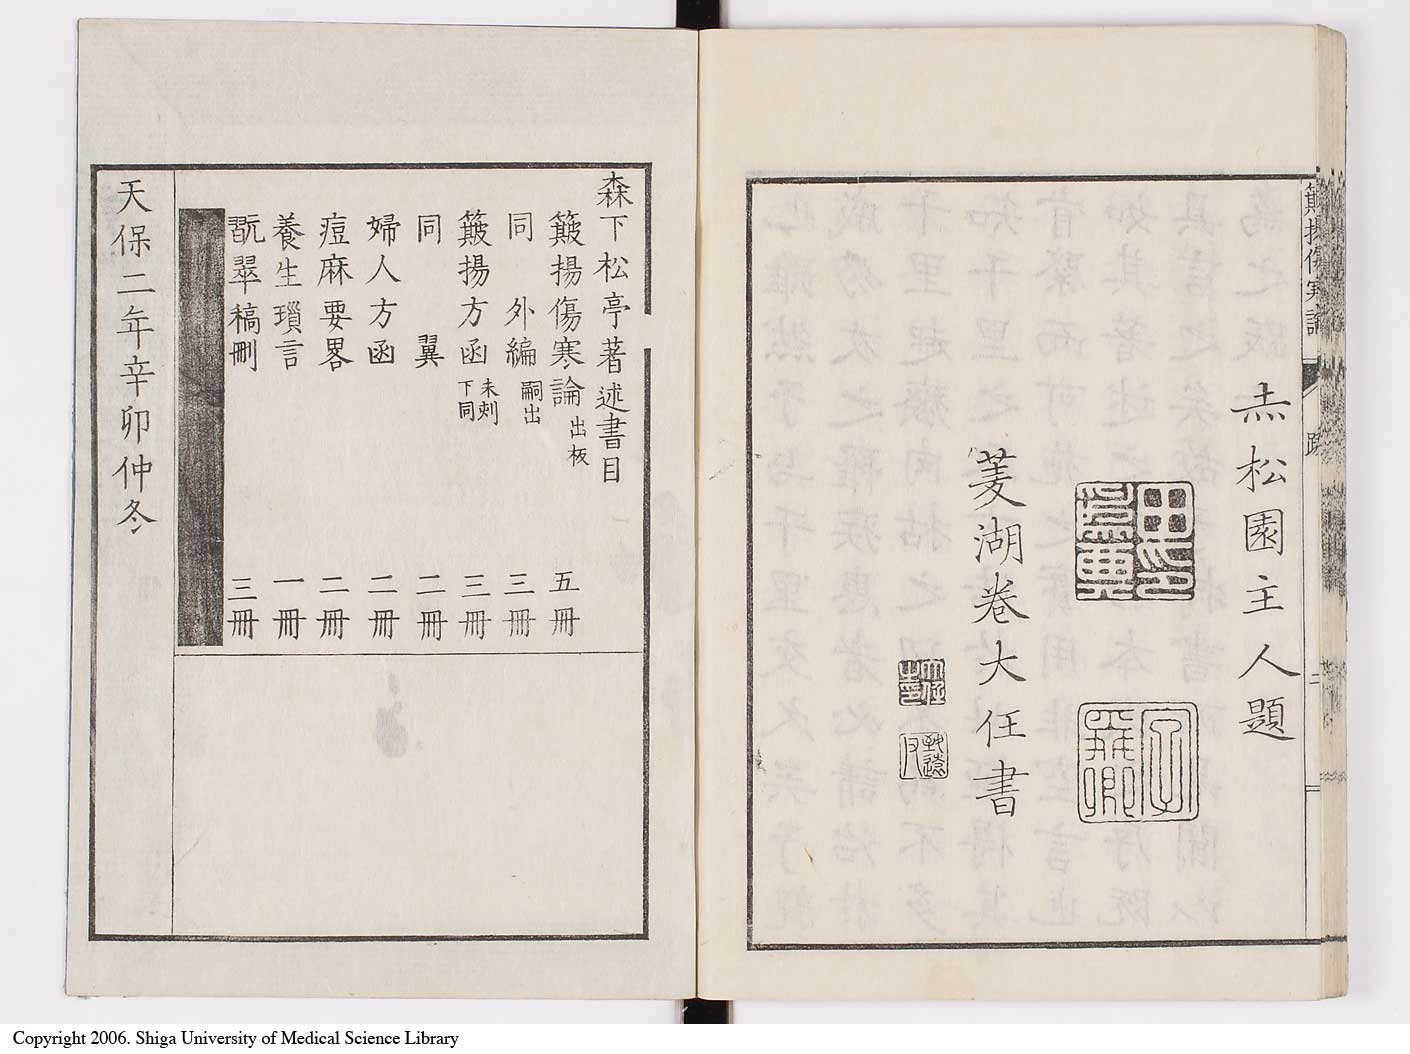 赤松園主人題
菱湖卷大任書
森下松亭著述書目
簸揚傷寒論 出板 五冊
同 外編 嗣出 三冊
簸揚方函 未刻 下同 三冊
同 翼 二冊
婦人方函 二冊
痘麻要畧 二冊
養生瑣言 一冊
翫翠稿刪 三冊
天保二年辛卯仲冬
Copyright 2006. Shiga University of Medical Science Library